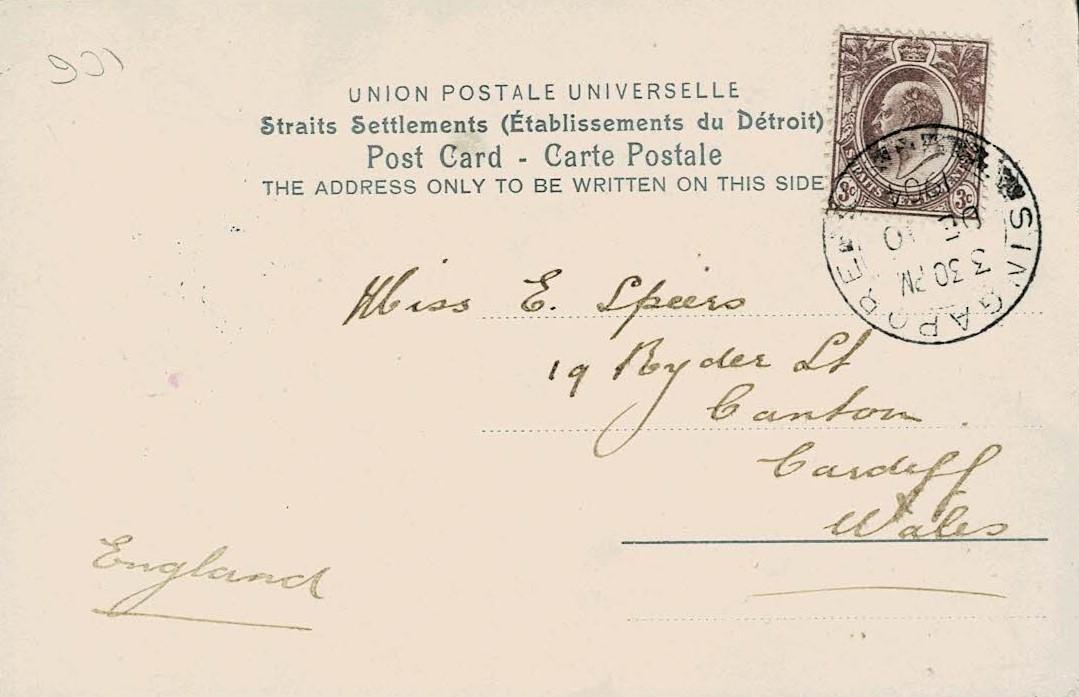 UNION POSTALE UNIVERSELLE
Straits Settlements (Établissements du Détroit)
Post Card - Carte Postale
THE ADDRESS ONLY TO BE WRITTEN ON THIS SIDE
3c 3c
SINGAPORE
3 30 PM
Miss E. Speers
19 Ryder St
Canton
Cardiff
Wales
England